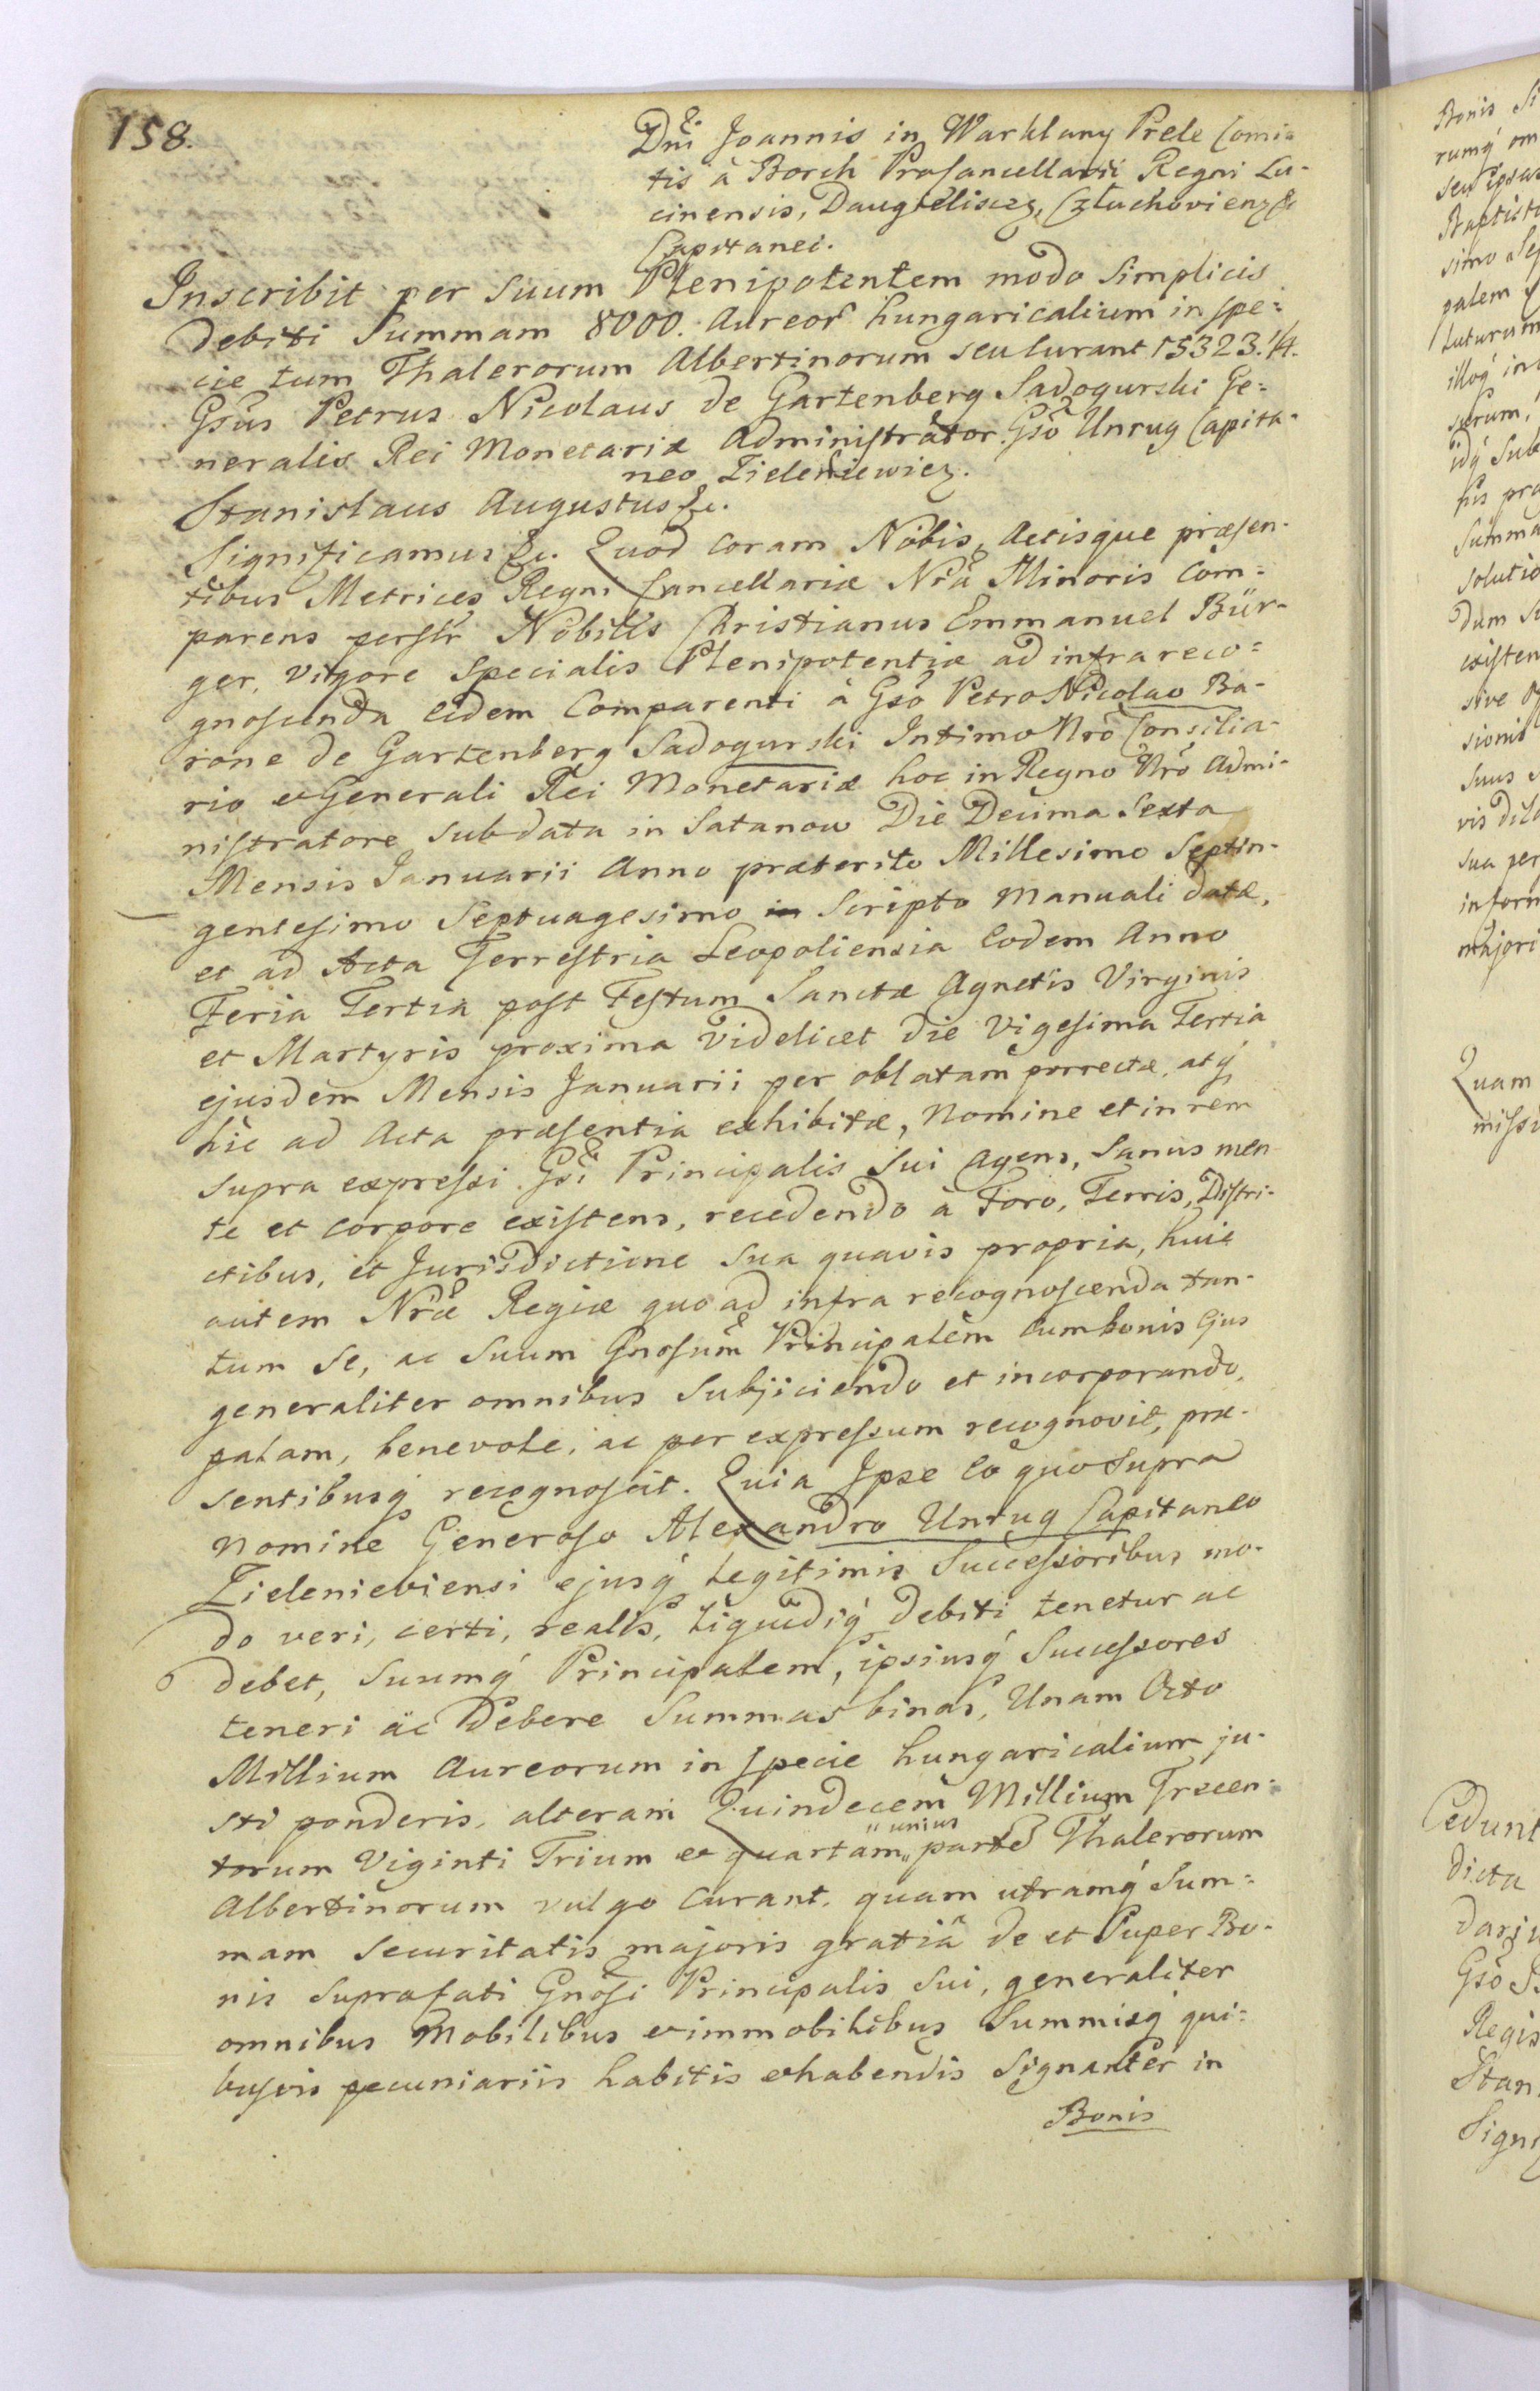 158.
Dni Joannis in Warklany Prele Comi=
tis à Borch Procancellarii Regni Lu-
cinensis, Daugieliscz, Człuchovienz &
Capitanei.
Inscribit per Suum Plenipotentem modo Simplicis
Debiti Summam 8000. Aureor hungaricalium in spe=
cie tum Thalerorum Albertinorum seu Curant 15323.¼.
Gsus Petrus Nicolaus de Gartenberg Sadogurski Ge=
neralis Rei Monetariæ Administrator Gsō Unrug Capita-
neo Zieleniewicz.
Stanislaus Augustus &c.
Significamus &c. Quod Coram Nobis, Actisque præsen-
tibus Metrices Regni Cancellariæ Nrā Minoris Com=
parens perslr Nobilis Christianus Emmanuel Bür-
ger, vigore Specialis Plenipotentiæ ad infra reco=
gnoscenda eidem Comparenti à Gsō Petro Nicolao Ba-
rone de Gartenberg Sadogurski Intimo Nrō Consilia-
rio et Generali Rei Monetariæ hoc in Regno Nrō Admi-
nistratore sub data in Satanow Die Decima Sexta
Mensis Januarii Anno præterito Millesimo Septin-
gentesimo Septuagesimo in Scripto Manuali datæ,
et ad Acta Terrestria Leopoliensia Eodem Anno
Feria Tertia post Festum Sanctæ Agnetis Virginis
et Martyris proxima Videlicet Die Vigesima Tertia
ejusdem Mensis Januarii per oblatam porrectæ, atq́
hic ad Acta præsentia exhibitæ, Nomine et in rem
Supra expressi Gsi Principalis Sui Agens, Sanus men
te et Corpore existens, recedendo à Foro, Terris, Distri-
ctibus, et Jurisdictione Sua quavis propria, huic
autem Nræ Regiæ quoad infra recognoscenda tan-
tum Se, ac Suum Gnosum Principalem Cum bonis Ejus
generaliter omnibus Subjiciendo et incorporando,
palam, benevole, ac per expressum recognovit, præ-
sentibusq́ recognoscit. Quia Ipse Eo quo Supra
Nomine Generoso Alexandro Unrug Capitaneo
Zieleniewiensi ejusq́ Legitimis Successoribus mo-
do veri, certi, realis, Liquidiq́ Debiti tenetur ac
Debet, Suumq́ Principalem, ipsiusq́ Successores
teneri ac Debere Summas binas, Unam Octo
Millium Aureorum in Specie hungaricalium ju-
sti ponderis, alteram Quindecem Millium Trecen=
torum Viginti Trium et quartam " unius parte Thalerorum
Albertinorum vulgo Curant. quam utramq́ Sum=
mam Securitatis majoris gratiâ de et Super Bo-
nis Suprafati Gnosi Principalis Sui, generaliter
omnibus Mobilibus et immobilibus Summisq́ qui=
busvis pecuniariis habitis et habendis Signanter in
Bonis